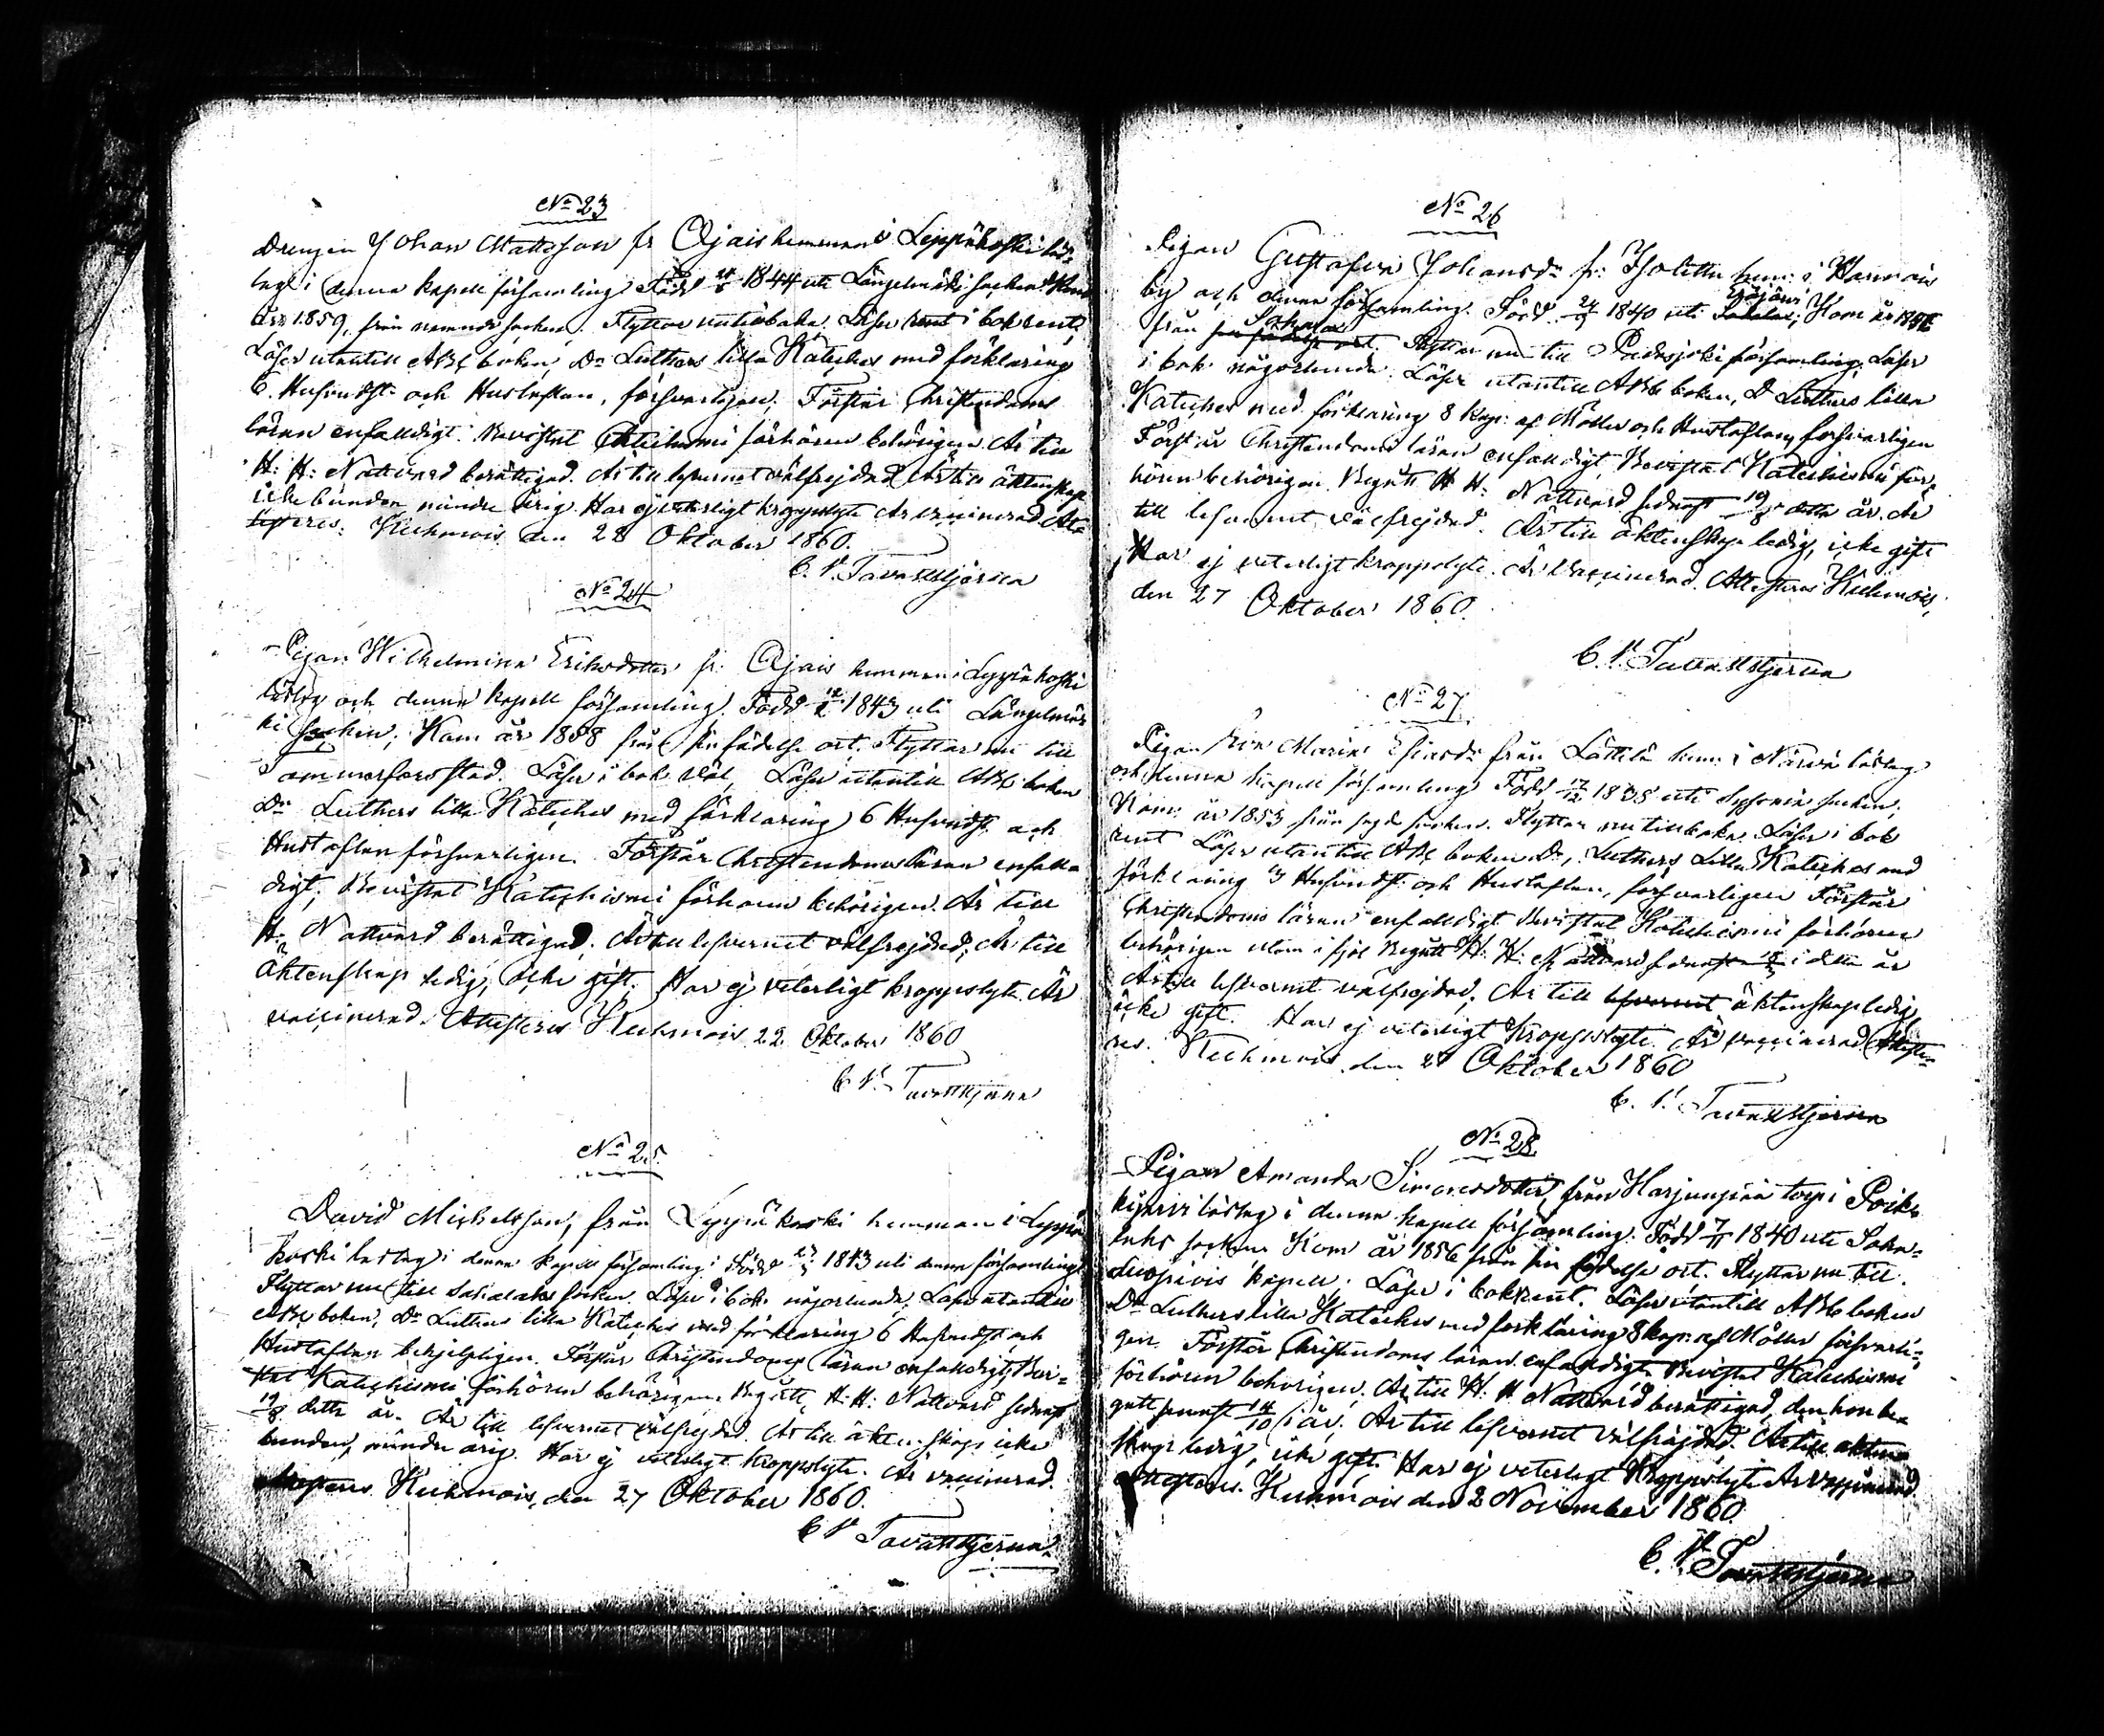 No 23
Drengen Johan Mattsson fr Ojais hemman i Leppäkoski lös-
lag i denna kapell församling. Född 1844 uti Längelmäki socken Kom
år 1859, från nemnde socken. Flyttar nu tilbaka. Läser rent i bok rent,
Läser utantill ABC boken, Dr Luthers lilla Kateches med förklaring
6. Hufvudst. och Hustaflan, försvarligen, Förstår Christendoms
läran enfaldigt. Bevistat Katechismi förhören behörigen. Är till
H: H: Nattvard berättigad. Är till lefvernet välfrejdad är till äktenskap
icke bunden mindre årig. Har ej veterligt kroppslyte Är vaccinerad At-
testeres. Kuhmois den 28 Oktober 1860.
C. V. Tavaststjerna
No 24
Pigan Wilhelmina Eriksdotter fr. Ojais hemman i Leppäkoski
löslag och denna kapell församling. Född 1843 uti Längelmä-
ki socken; Kom år 1858 från sin födelse ort. Flyttar nu till
Tammerfors stad. Läser i bok väl, Läser utantill ABC boken
Dr Luthers lilla Kateches med förklaring 6 Hufvudst. och
Hustaflan försvarligen. Förstår Christendomsläran enfal-
digt, Bevistat Katechismi förhören behörigen. Är till
H. Nattvard berättigad. Är till lefvernet välfrejdad; Är till
Äktenskap ledig, icke gift. Har ej veterligt kroppslyte. Är
vaccinerad. Attesteres Kuhmois 22 Oktober 1860
C. V. Tavaststjerna
No 25.
David Michelsson, från Leppäkoski hemman i Leppä-
koski löslag i denna kapell församling. Född 1843 uti denna församling
Flyttar nu till Sahalaks socken. Läser i bok någorlunda. Läser utantill
ABC boken, Dr Luthers lilla Kateches med förklaring 6 Hufvudst. och
Hustaflan behjelpligen. Förstår Christendoms läran enfaldigt, Bevi-
stat Katechismi förhören behörigen. Begått H. H: Nattvard sednast
19/8 detta år. Är till lefvernet välfrejdad. Är till äktenskap icke
bunden, mindre årig. Har ej veterligt kroppslyte. Är vaccinerad.
Attesteres Kuhmois, den 27 Oktober 1860.
C V Tavaststjerna
No 26
Pigan Gustafva Johansdr fr: hem: i Harmois
by och denna församling. Född 1840 uti Kom år
från Flyttar nu till Padasjoki församling. Läser
i bok någorlunda. Läser utantill ABC boken, D Luthers lilla
Kateches med förklaring 8 kap: af Möller och Hustaflan försvarligen
Förstår Christendoms läran enfaldigt. Bevistat Katechismi för-
hören behörigen. Begått H H: Nattvard sednast 19/8 detta år. Är
till lefvernet välfrejdad. Är till äktenskap ledig, icke gift
Har ej veterligt kroppslyte. Är vaccinerad. Attesteres Kuhmois,
den 27 Oktober 1860.
C. V. Tavaststjerna
No 27.
Pigan Maria från hem: i löslag
och denna kapell församling. Född uti socken,
Kom: år 1853 från sagde socken. Flyttar nu tillbaka. Läser i bok
rent Läser utantill ABC boken Dr, Luthers Lilla Kateches med
förklaring 3 Hufvudst: och Hustaflan, försvarligen Förstår
Christendoms läran enfaldigt Bevistat Katechismi förhören
behörigen utom i fjol Begått H: H: Nattvard sednast i detta år
Är till lefvernet välfrejdad, Är till lefvernet äktenskap ledig,
icke gift. Har ej veterligt kroppslyte. Är vaccinerad. Atteste-
res. Kuhmois den 27 Oktober 1860
C. V. Tavaststjerna
No 28.
Pigan Amanda Simonsdotter, från Harjunpää torp i
löslag i denna kapell församling. Född 7/11 1840 uti Saha-
laks socken. Kom år 1856 från sin födelse ort. Flyttar nu till
Luopiois kapell. Läser i bok rent. Läser utantill ABC boken
Dr Luthers lilla Kateches med förklaring 8 kap: af Möller försvarli-
gen. Förstår Christendoms läran enfaldigt Bevistat Katechismi
förhören behörigen, Är till H: H Nattvard berättigad, den hon be-
gått senast 14/10 i år. Är till lefvernet välfrejdad. Är till äkten-
skap ledig, icke gift. Har ej veterligt Kroppslyte Är vaccinerad
Attesteres. Kuhmois den 2 November 1860
C. V. Tavaststjerna